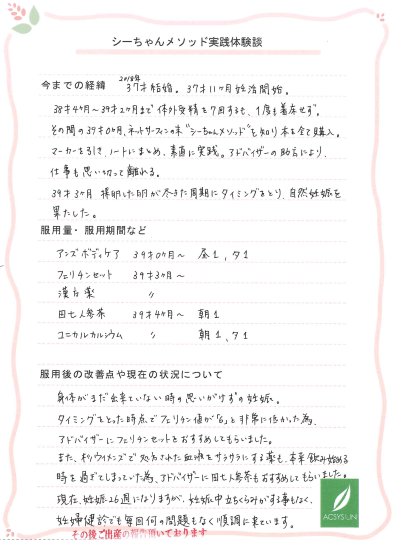 シーちゃんメソッド実践体験談
今までの経緯
2018年
37才結婚。37才11ヶ月妊活開始。
38才4ヶ月〜39才2ヶ月まで体外受精を7回するも、1度も着床せず。
その間の39才0ヶ月、ネットサーフィンの末"シーちゃんメソッド"を知り本を全て購入。
マーカーを引き、ノートにまとめ、素直に実践。アドバイザーの助言により、
仕事も思い切って離れる。
39才3ヶ月 採卵した卵が尽きた周期にタイミングをとり、自然妊娠を
果たした。
服用量・服用期間など
アンズボディケア 39才0ヶ月〜 昼1、夕1
フェリチンセット 39才3ヶ月〜
漢方薬 〃
田七人参茶 39才4ヶ月〜 朝1
ユニカルカルシウム 〃 朝1、夕1
服用後の改善点や現在の状況について
身体がまだ出来ていない時の思いがけずの妊娠。
タイミングをとった時点でフェリチン値が「6」と非常に低かった為、
アドバイザーにフェリチンセットをおすすめしてもらいました。
また、杉ウイメンズで処方された血液をサラサラにする薬も、本来飲み始める
時を過ぎてしまっていた為、アドバイザーに田七人参茶もおすすめしてもらいました。
現在、妊娠26週になりますが、妊娠中立ちくらみがする事もなく、
妊婦健診でも毎回何の問題もなく順調に来ています。
その後ご出産の報告頂いております
ACSYSLIN